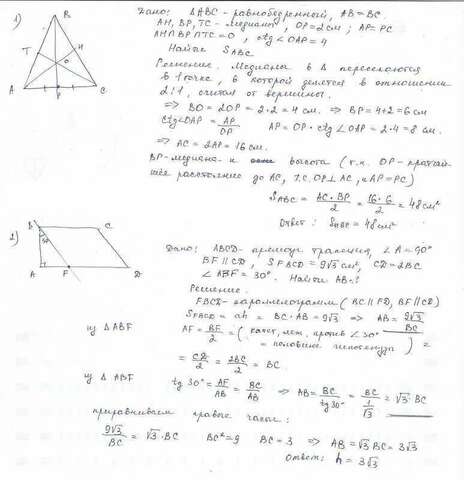 1)
B
T
H
O
A
P
C
Дано: ΔABC - равнобедренный, AB = BC.
AH, BP, TC - медианы, OP = 2 см; AP = PC
AH∩BP∩TC = O, ctg∠OAP = 4
Найти S_ABC
Решение. Медианы в Δ пересекаются
в 1 точке, в которой делятся в отношении
2:1, считая от вершины.
⇒ BO = 2OP = 2·2 = 4 см. ⇒ BP = 4+2 = 6 см
ctg∠OAP = AP/OP  AP = OP · ctg∠OAP = 2·4 = 8 см.
⇒ AC = 2AP = 16 см.
BP - медиана и высота (т.к. OP - кратчай-
шее расстояние до AC, т.е. OP⊥AC, и AP = PC)
S_ABC = AC·BP/2 = 16·6/2 = 48 см²
Ответ: S_ABC = 48 см²
2)
B
C
30°
A
F
D
Дано: ABCD - прямоуг трапеция, ∠A = 90°
BF ∥ CD, S_FBCD = 9√3 см², CD = 2BC
∠ABF = 30°. Найти AB - ?
Решение.
FBCD - параллелограмм (BC ∥ FD, BF ∥ CD)
S_FBCD = ah = BC · AB = 9√3 ⇒ AB = 9√3/BC
из ΔABF
AF = BF/2 = (катет, леж. против ∠30° = половине гипотенузы) =
= CD/2 = 2BC/2 = BC.
из ΔABF
tg 30° = AF/AB = BC/AB ⇒ AB = BC/tg 30° = BC/(1/√3) = √3 · BC
приравниваем правые части:
9√3/BC = √3 · BC  BC² = 9  BC = 3 ⇒ AB = √3 BC = 3√3
Ответ: h = 3√3